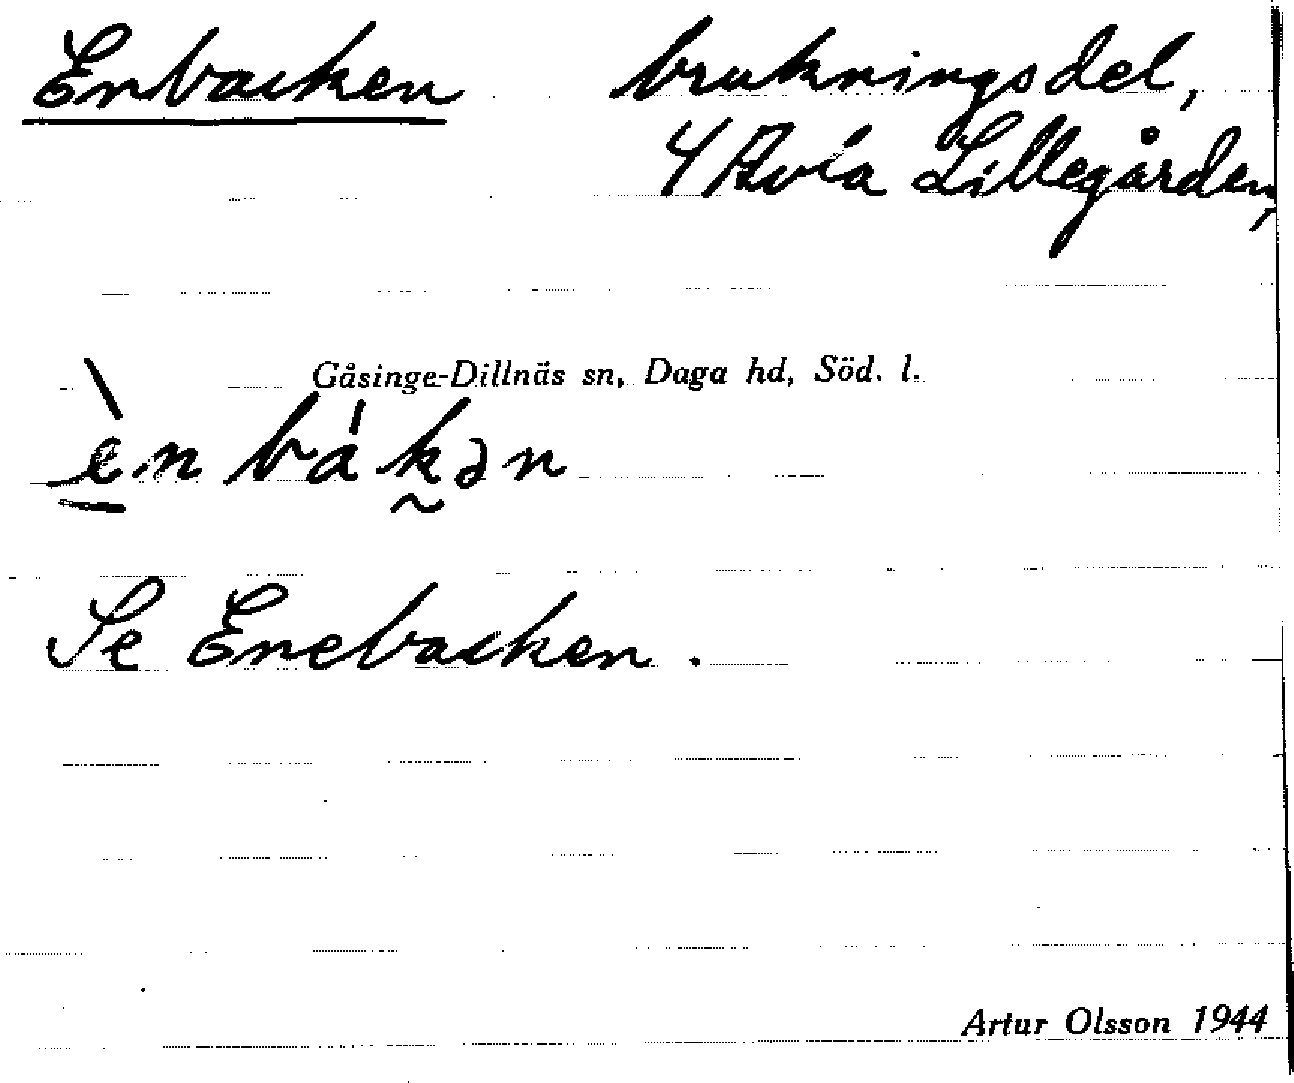 Enbacken brukningsdel,
4 Avla Lillegården,
Gåsinge-Dillnäs sn, Daga hd, Söd. l.
è̱n bák̰ən
Se Enebacken.
Artur Olsson 1944